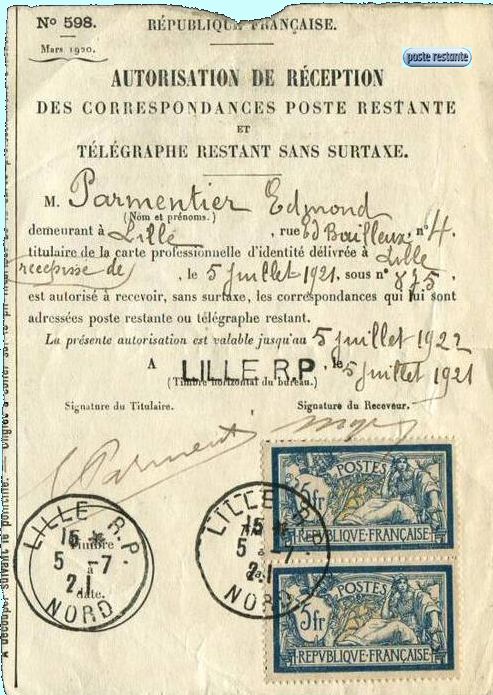 No 598.
RÉPUBLIQUE FRANÇAISE.
Mars 1920.
poste restante
AUTORISATION DE RÉCEPTION
DES CORRESPONDANCES POSTE RESTANTE
ET
TÉLÉGRAPHE RESTANT SANS SURTAXE.
M. Parmentier Edmond
(Nom et prénoms.)
demeurant à Lille, rue Ed Bailleux, n° 4.
titulaire de la carte professionnelle d'identité délivrée à Lille
recepisse de, le 5 juillet 1921, sous n° 875
est autorisé à recevoir, sans surtaxe, les correspondances qui lui sont
adressées poste restante ou télégraphe restant.
La présente autorisation est valable jusqu'au 5 juillet 1922
A LILLE R.P. le 5 juillet 1921
(Timbre horizontal du bureau.)
Signature du Titulaire. Signature du Receveur.
Parment
LILLE R.P.
15 *
5 -7
21
NORD
Timbre
à
date.
LILLE R.P.
15 *
5 -7
21
NORD
5fr POSTES
REPVBLIQVE·FRANÇAISE
5fr POSTES
REPVBLIQVE·FRANÇAISE
A découper suivant le pointillé.